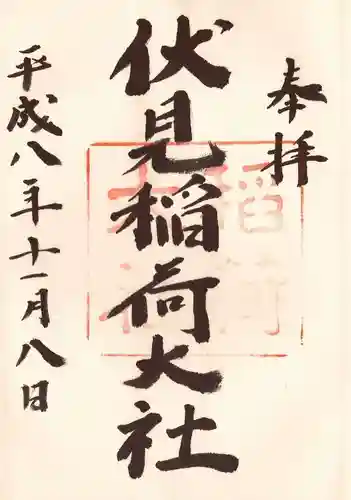 奉拝
伏見稲荷大社
平成八年十一月八日
稲荷
大社